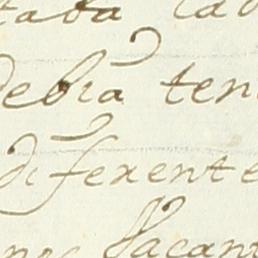 taba
debia ten
diferente
Vacan